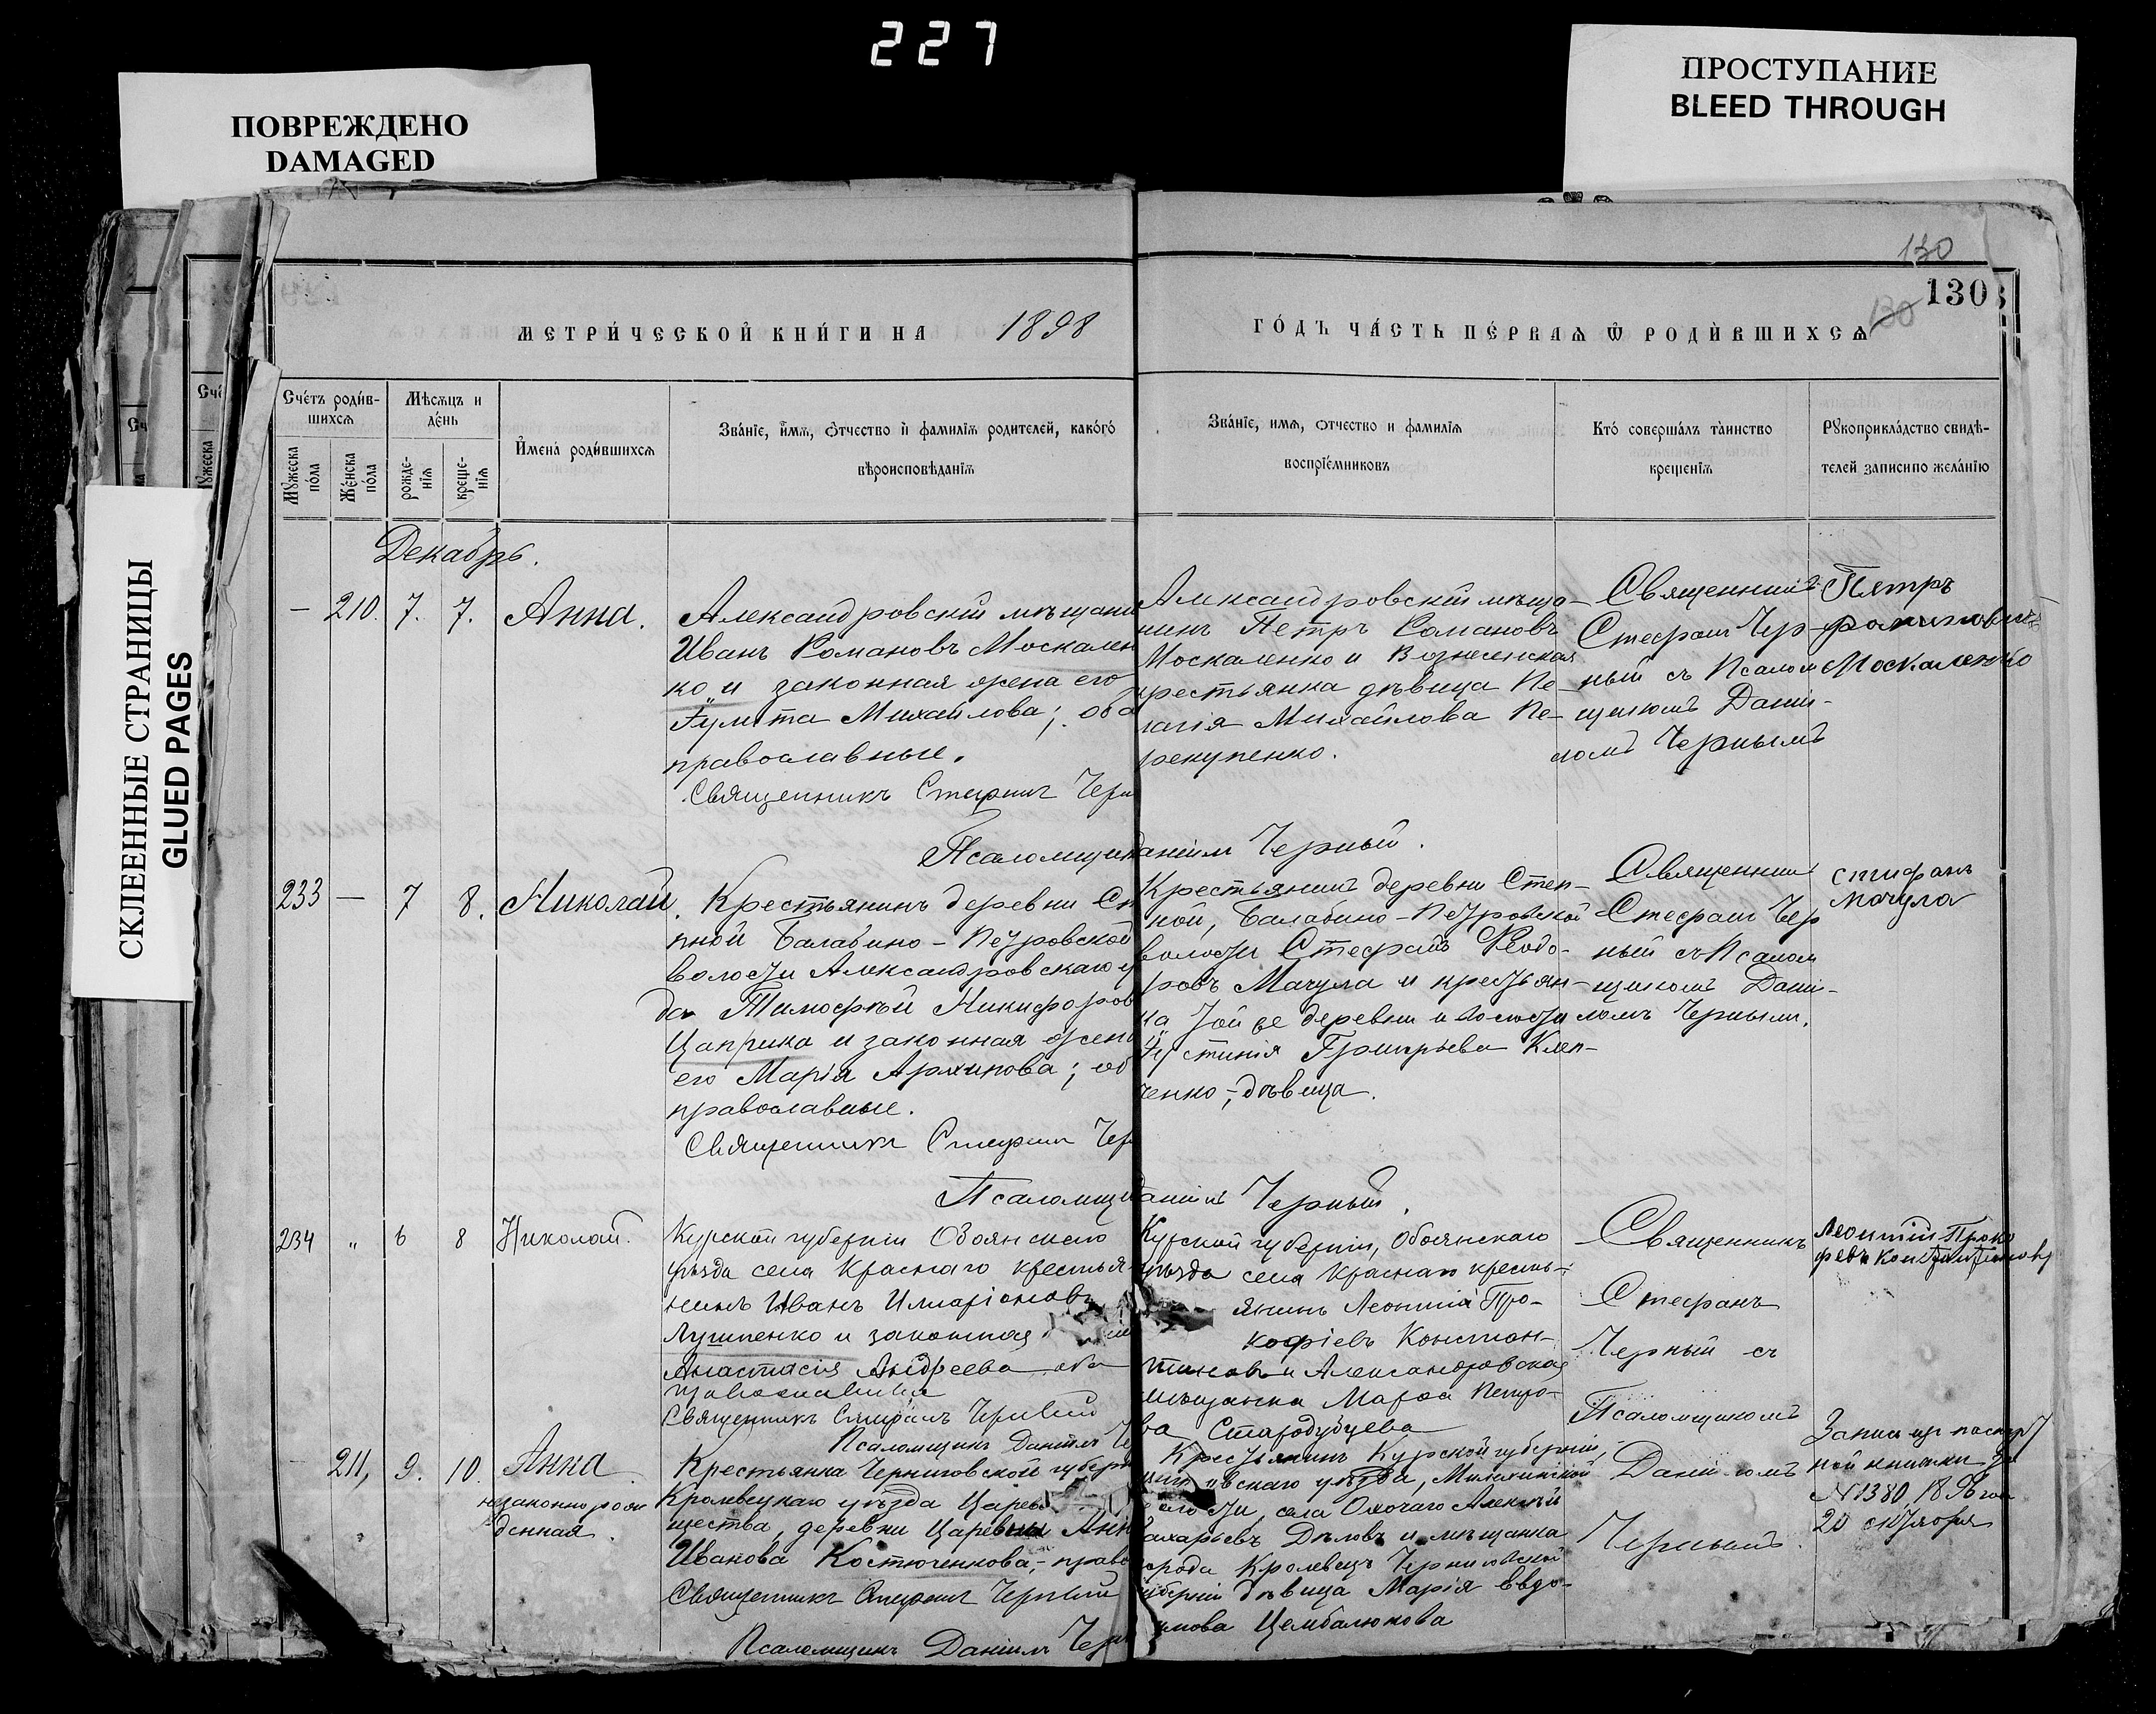 227
ПОВРЕЖДЕНО
DAMAGED
ПРОСТУПАНИЕ
BLEED THROUGH
СКЛЕЕННЫЕ СТРАНИЦЫ
GLUED PAGES
130
130
130
МЕТРИ́ЧЕСКОЙ КНИ́ГИ НА 1898
ГО́ДЪ ЧА́СТЬ ПЕ́РВАѦ Ѿ РОДИ́ВШИХСѦ
Сче́тъ роди́в-
шихсѧ
Мꙋжеска
по́ла
Же́нска
по́ла
Мѣ́сѧцъ и
де́нь
рожде-
нїѧ
креще-
нїѧ
И҆мена̀ роди́вшихсѧ
Зва́нїе, и҆́мѧ, ѻ҆́тчество и҆ фамилїѧ родителей, како́гѡ
вѣроисповѣ́данїѧ
Зва́нїе, имѧ, отчество и фамилїѧ
воспрїе́мниковъ
Кто̀ соверша́лъ та́инство
креще́нїѧ
Рꙋкоприкла́дство свидѣ́-
телей записи по жела́нїю
Декабрь.
— 210. 7. 7. Анна.
Александровскій мѣщани
Иванъ Романовъ Москален
ко и законная жена его
Михайлова; оба
православные.
Священникъ Стефанъ Черн
Александровскій мѣща-
нинъ Петръ Романовъ
Москаленко и Вознесенская
крестьянка дѣвица Пе-
лагія Михайлова Пе-
рекупенко.
Священникъ
Стефанъ Чер-
ный съ Псалом
щикомъ Дані-
ломъ Чернымъ
Петръ
Романовичъ
Москаленко
Псаломщикъ Даніилъ Черный.
233 — 7 8. Николай.
Крестьянинъ деревни Сте
пной Балабино-Петровской
волости Александровскаго у
да Тимофѣй Никифоров
Цаприка и законная жена
его Марія Архипова; об
православные.
Священникъ Стефанъ Чер
Крестьянинъ деревни Степ-
ной, Балабино-Петровской
волости Стефанъ Ѳеодо-
ровъ Мачула и крестьян-
ка той же деревни и волости
Устинія Григорьева Клеп-
ченко, дѣвица.
Священникъ
Стефанъ Чер
ный съ Псалом
щикомъ Дані-
ломъ Чернымъ.
Стифанъ
Мачула
Псаломщикъ Даніилъ Черный.
234 " 6 8 Николай.
Курской губерніи Обоянскаго
уѣзда села Краснаго крестья-
нинъ Иванъ Иларіоновъ
и законная
Анастасія Андреева оба
православные
Священникъ Стефанъ Черный
Псаломщикъ Даніилъ Че
Курской губерніи, Обоянскаго
уѣзда села Краснаго кресть-
янинъ Леонтій Про-
кофіевъ Констан-
тиновъ и Александровская
мѣщанка Марѳа Петро-
ва Стародубцева
Священникъ
Стефанъ
Черный съ
Псаломщикомъ
Даніиломъ
Чернымъ.
Леонтій Проко
февъ Константиновъ
— 211, 9. 10. Анна
незаконно рож
денная.
Крестьянка Черниговской губерн
Кролевецкаго уѣзда Царев
щества, деревни Царевки Анн
Иванова Костюченкова, - право
Священникъ Стефанъ Черный
Псаломщикъ Даніилъ Черн
Крестьянинъ Курской губерніи,
уѣзда,
волости, села Алексѣй
Захарьевъ Дѣловъ и мѣщанка
города Кролевецъ Черниговской
губерніи дѣвица Марія Евдо-
кимова Цембалюкова
Запись изъ паспорт
ной книжки за
№ 1380 1898 года
20 октября